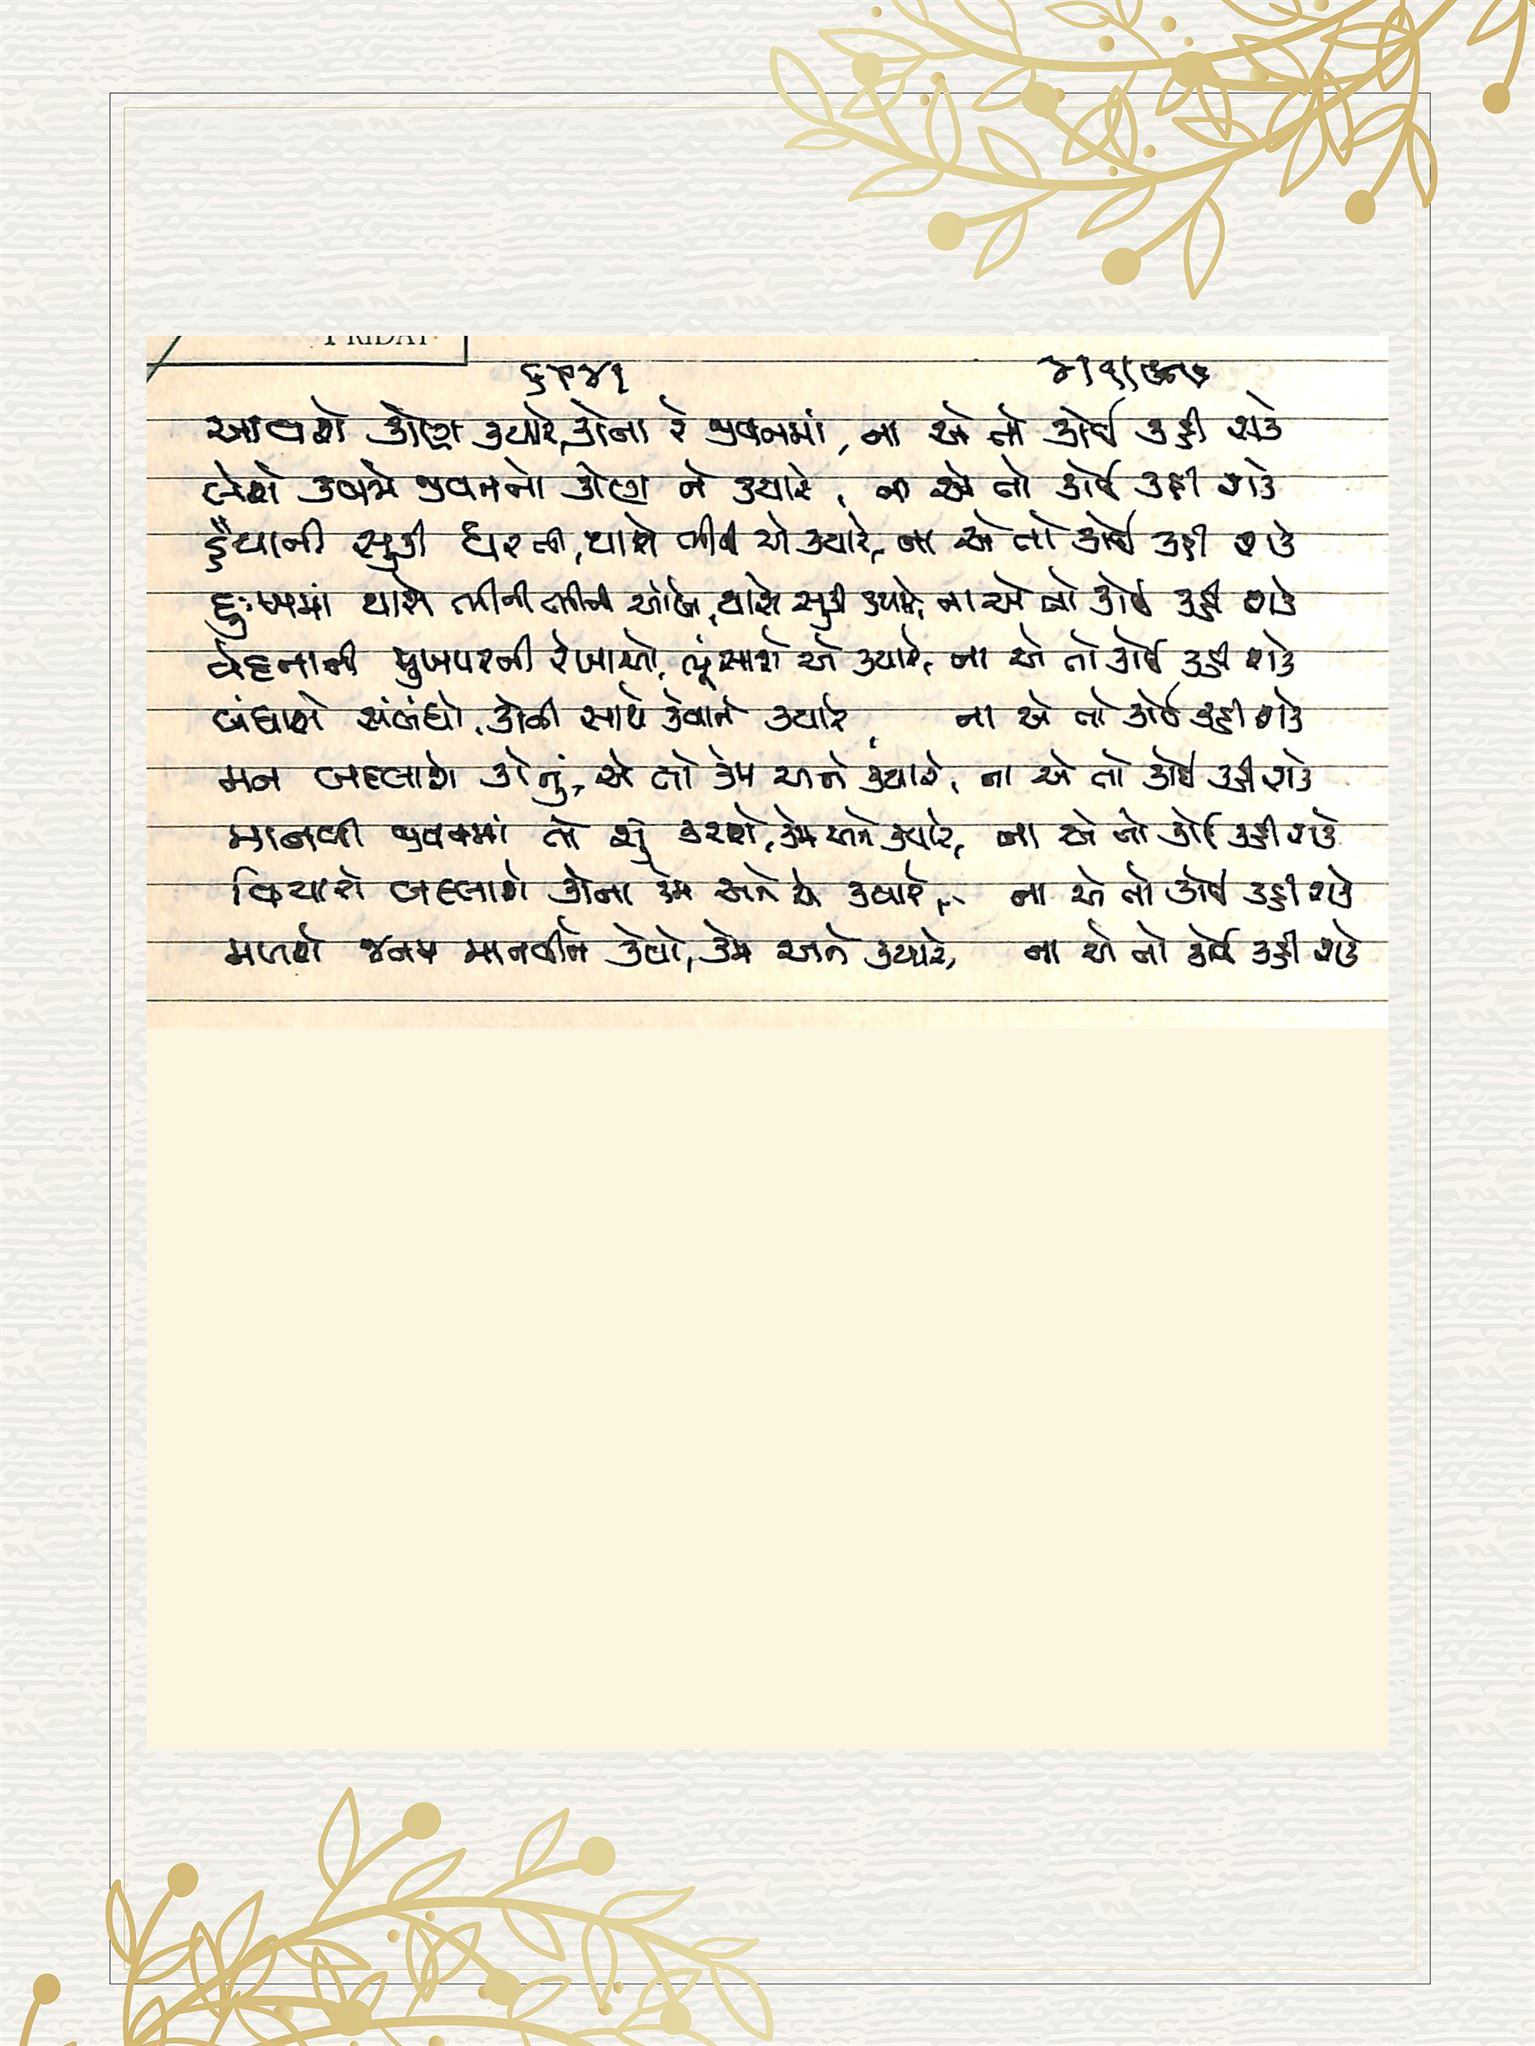 FRIDAY
૬૫૪૧
આવશે કોણ ક્યારે, કોના રે જીવનમાં, ના એ તો કોઈ કહી શકે
લેશે કબજો જીવનનો કોણ ને ક્યારે, ના એ તો કોઈ કહી શકે
હૈયાની સુકી ધરતી, થાશે ભીની એ ક્યારે, ના એ તો કોઈ કહી શકે
દુઃખમાં થાશે ભીની ભીની આંખો, થાશે સુકી ક્યારે, ના એ તો કોઈ કહી શકે
વેદનાની મુખપરની રેખાઓ, ભૂંસાશે એ ક્યારે, ના એ તો કોઈ કહી શકે
બંધાશે સંબંધો, કોની સાથે કેવાને ક્યારે, ના એ તો કોઈ કહી શકે
મન બદલાશે કોનું, એ તો કેમ અને ક્યારે, ના એ તો કોઈ કહી શકે
માનવી જીવનમાં તો શું કરશે, કેમ અને ક્યારે, ના એ તો કોઈ કહી શકે
વિચારો બદલાશે કોના કેમ અને ક્યારે, ના એ તો કોઈ કહી શકે
મળશે જનમ માનવીને કેવો, કેમ અને ક્યારે, ના એ તો કોઈ કહી શકે